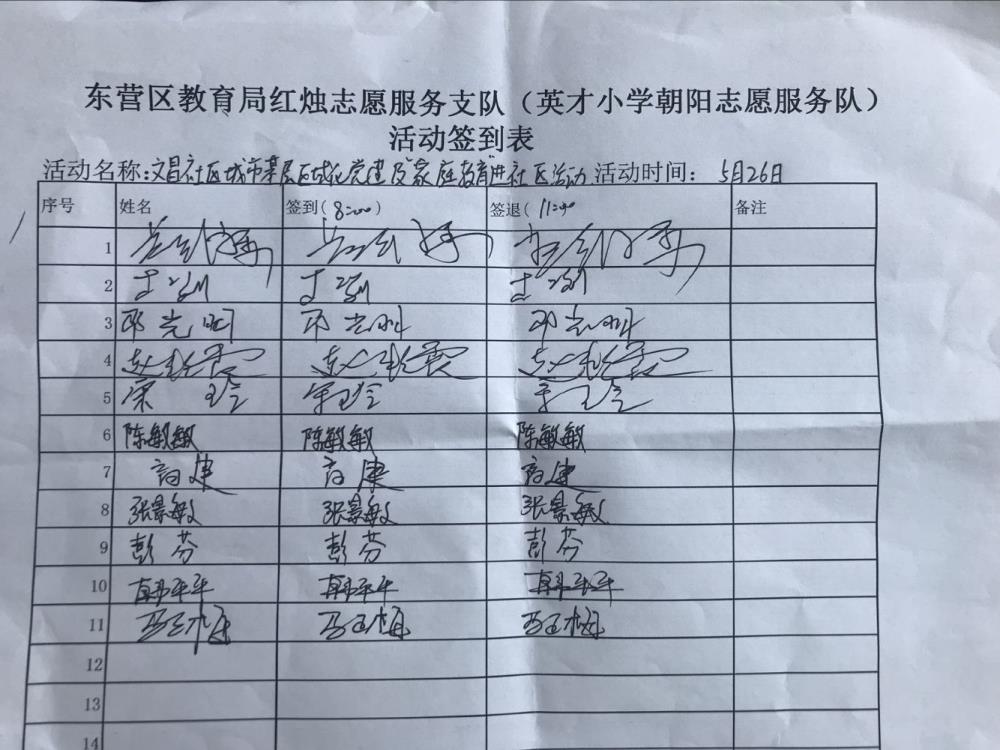 东营区教育局红烛志愿服务支队（英才小学朝阳志愿服务队）
活动签到表
活动名称：文昌社区城市基层区域化党建及"家庭教育"进社区活动 活动时间： 5月26日
序号 姓名 签到（8:00） 签退（11:00 备注
1
2
3 邓光明 邓光明 邓光明
4
5 宋玉玲 宋玉玲 宋玉玲
6 陈敏敏 陈敏敏 陈敏敏
7 高建 高建 高建
8 张景敏 张景敏 张景敏
9 彭芬 彭芬 彭芬
10 韩平平 韩平平 韩平平
11 马玉梅 马玉梅 马玉梅
12
13
14